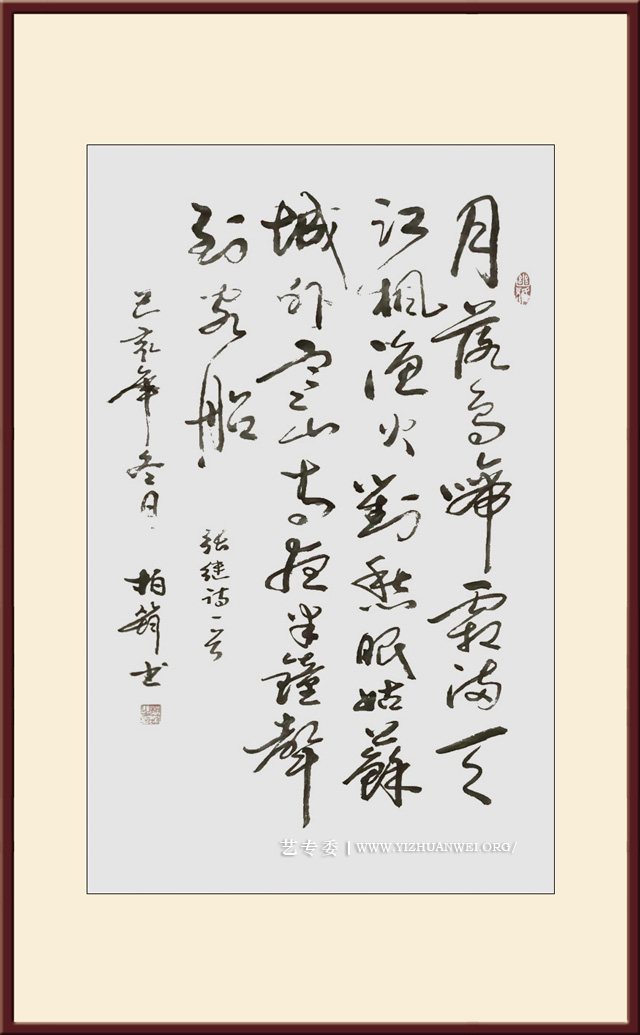 月落烏啼霜满天
江楓漁火對愁眠姑蘇
城外寒山寺夜半鐘聲
到客船
张继诗一首
己亥年冬月
柏筠书
艺专委 | WWW.YIZHUANWEI.ORG/